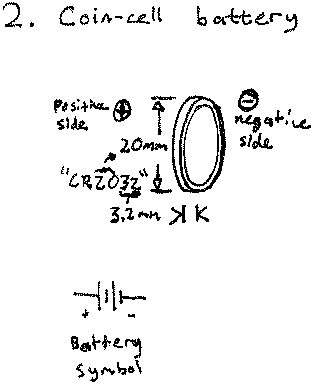 2. Coin-cell battery
Positive side ⊕
⊖ negative side
20mm
"CR2032"
3.2mm
+ -
Battery
symbol